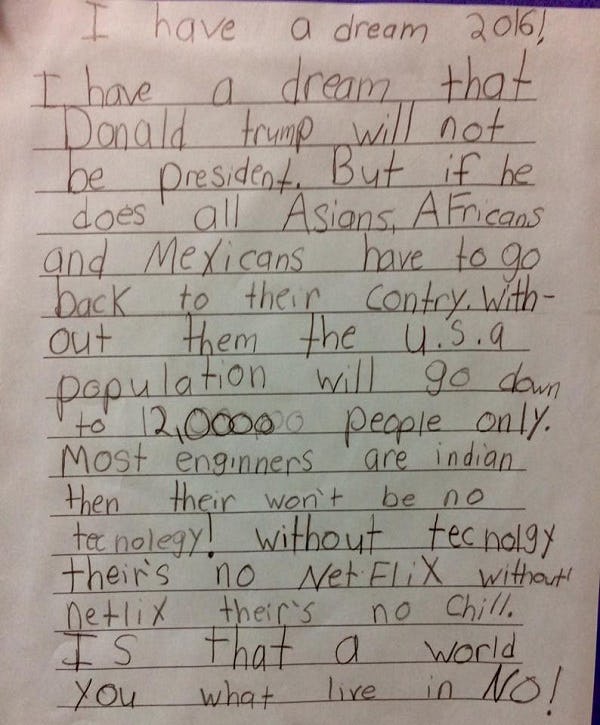 I have a dream 2016!
I have a dream that
Donald trump will not
be president. But if he
does all Asians, AFricans
and Mexicans have to go
back to their contry. With-
out them the u.s.a
population will go down
to 12,000000 people only.
Most enginners are indian
then their won't be no
tecnolegy! without tecnolgy
their's no NetFliX without
netlix their's no Chill.
IS that a world
you what live in NO!